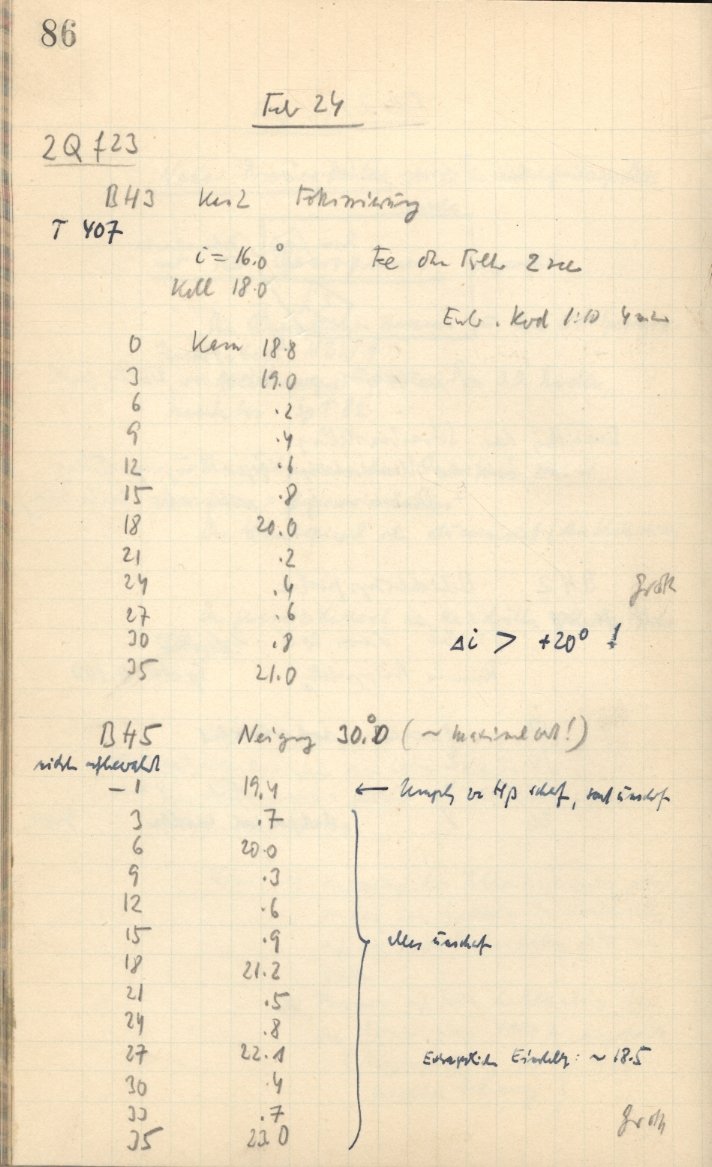 86
Feb 24
2Q f23
BH3 Kas 2 Fokussierung
T 407
i = 16.0° Fe ohne Filter 2 sec
Koll 18.0
1:10 4 min
0 Kam 18.8
3 19.0
6 .2
9 .4
12 .6
15 .8
18 20.0
21 .2
24 .4 Groth
27 .6
30 .8 Δi > +20° !
35 21.0
BH5 Neigung 30.°0 (~ maximal !)
nicht aufbewahrt
-1 19.4 ← Umgeb. von Hβ scharf, sonst unscharf
3 .7
6 20.0
9 .3
12 .6
15 .9 alles unscharf
18 21.2
21 .5
24 .8
27 22.1 Einstellg: ~ 18.5
30 .4
33 .7 Groth
35 23.0